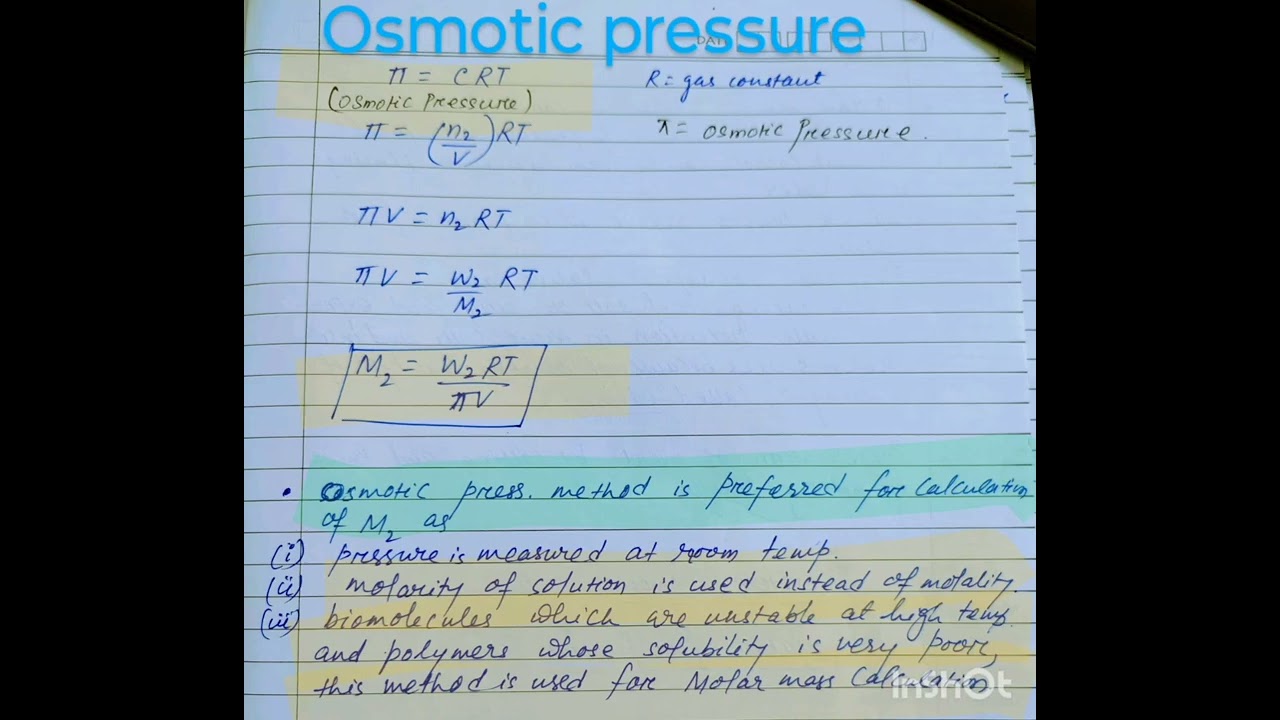 Osmotic pressure
DATE
π = CRT
(Osmotic Pressure)
R = gas constant
π = (n₂/V) RT
π = Osmotic Pressure.
πV = n₂ RT
πV = W₂/M₂ RT
M₂ = W₂ RT/πV
• Osmotic press. method is preferred for calculation
of M₂ as
(i) pressure is measured at room temp.
(ii) molarity of solution is used instead of molality.
(iii) biomolecules which are unstable at high temp.
and polymers whose solubility is very poor,
this method is used for Molar mass Calculation
INSHOT